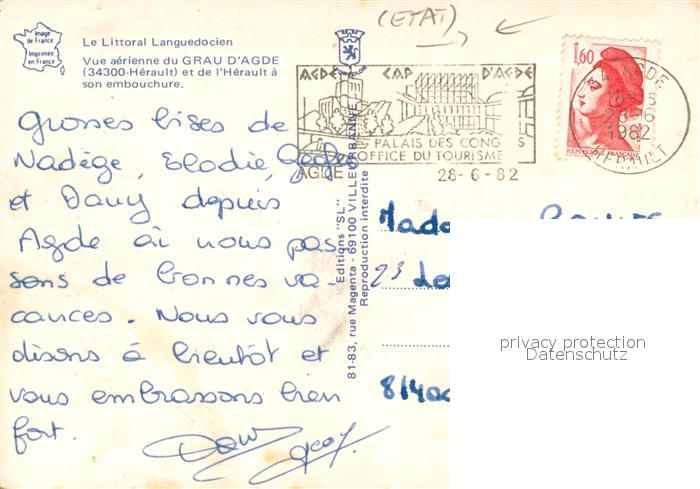 Image
de France
Imprimée
en France
Le Littoral Languedocien
Vue aérienne du GRAU D'AGDE
(34300-Hérault) et de l'Hérault à
son embouchure.
(ETAT)
AGDE CAP D'AGDE
PALAIS DES CONG S
OFFICE DU TOURISME
AGDE 28-6-82
1,60
REPUBLIQUE FRANÇAISE
AGDE
28-6
1982
HERAULT
Grosses bises de
Nadège, Elodie,
et Dany depuis
Agde où nous pas
sons de bonnes va-
cances. Nous vous
disons à bientôt et
vous embrassons bien
fort.
Editions "SL"
81-83, rue Magenta - 69100 VILLEURBANNE
Reproduction interdite
Mada
23
privacy protection
Datenschutz